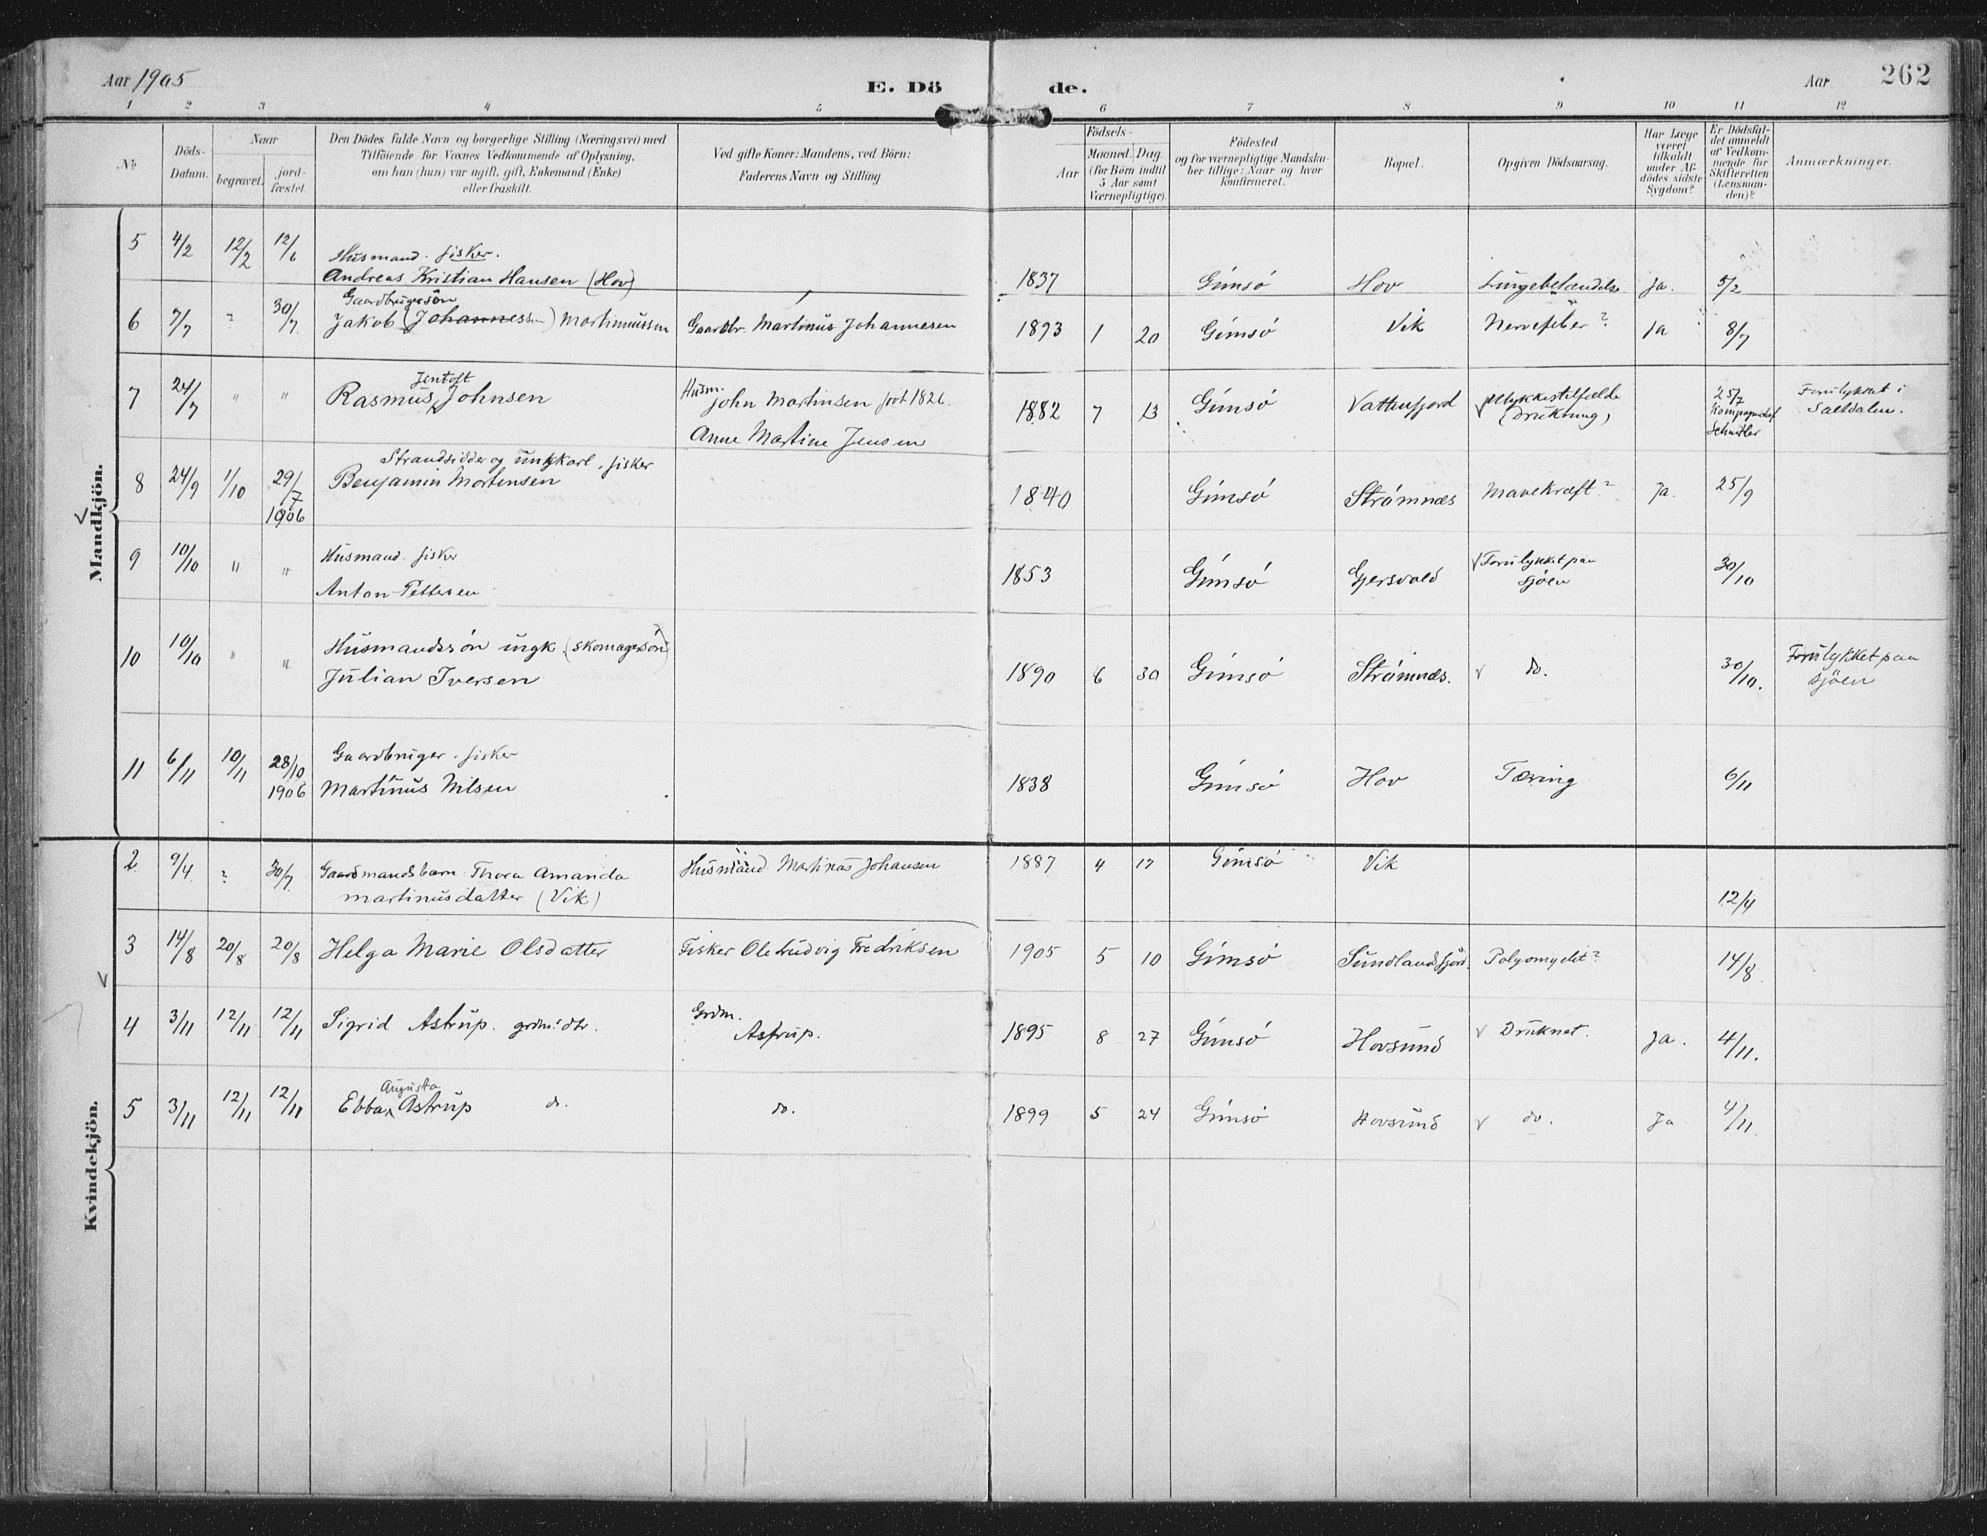 Aar 1905 E. Dö de. Aar 262
1 2 3 4 5 6 7 8 9 10 11 12
No.
Döds-Datum.
Naar
begravet.
jord-fæstet.
Den Dödes fulde Navn og borgerlige Stilling (Næringsvei) med
Tilföiende for Voxnes Vedkommende af Oplysning,
om han (hun) var ugift, gift, Enkemand (Enke)
eller fraskilt.
Ved gifte Koner: Mandens, ved Börn:
Faderens Navn og Stilling
Födsels-
Aar
Maaned. Dag
(for Börn indtil
5 Aar samt
Værnepligtige).
Födested
og for værnepligtige Mandska-
ber tillige: Naar og hvor
konfirmeret.
Bopæl.
Opgiven Dödsaarsag.
Har Læge
været
tilkaldt
under Af-
dödes sidste
Sygdom?
Er Dödsfal-
det anmeldt
af Vedkom-
mende for
Skifteretten
(Lensman-
den)?
Anmærkninger.
Mandkjön.
5 4/2 12/2 12/6 Husmand. fisker.
Andreas Kristian Hansen (Hov) 1837 Gimsö Hov Lungebetændelse ja. 5/2
Gaardbrugersön
6 7/7 " 30/7 Jakob (Johannessen) Martinussen Gaardbr. Martinus Johannesen 1893 1 20 Gimsö Vik Nervefeber? ja 8/7
Jentoft
7 24/7 " " Rasmus Johnsen Husm. John Martinsen født 1826. 1882 7 13 Gimsö Vatterfjord Ulykkestilfælde (Drukning) 25/7 Forulykket i
Anne Martine Jensen Schnitler Saltdalen.
Strandsidder og ungkarl. fisker
8 24/9 1/10 29/7 1906 Benjamin Mortensen 1840 Gimsö Strømnæs Mavekræft? Ja. 25/9
9 10/10 " " Husmand. fisker
Anton Pettersen 1853 Gimsö Gjersvold v Forulykket paa sjøen 30/10
10 10/10 " " Husmandssøn ungk. (skomagersön)
Julian Iversen 1890 6 30 Gimsö Strømnæs. v do. 30/10. Forulykket paa sjöen
11 6/11 10/11 28/10 1906 Gaardbruger. fisker
Martinus Nilsen 1838 Gimsö Hov Tæring 6/11
Kvindekjön.
2 9/4 " 30/7 Gaardmandsbarn Thora Amanda Husmand Martinus Johansen 1887 4 17 Gimsö Vik
Martinusdatter (Vik) 12/4
3 14/8 20/8 20/8 Helga Marie Olsdatter Fisker Ole Ludvig Fredriksen 1905 5 10 Gimsö Sundlandsfjord. Polyomyelit? 14/8
4 3/11 12/11 12/11 Sigrid Astrup. grdm.s dtr. Grdm. Astrup. 1895 8 27 Gimsö Hovsund v Druknet. Ja. 4/11.
Augusta
5 3/11 12/11 12/11 Ebba Astrup do. do. 1899 5 24 Gimsö Hovsund v do. Ja 4/11.